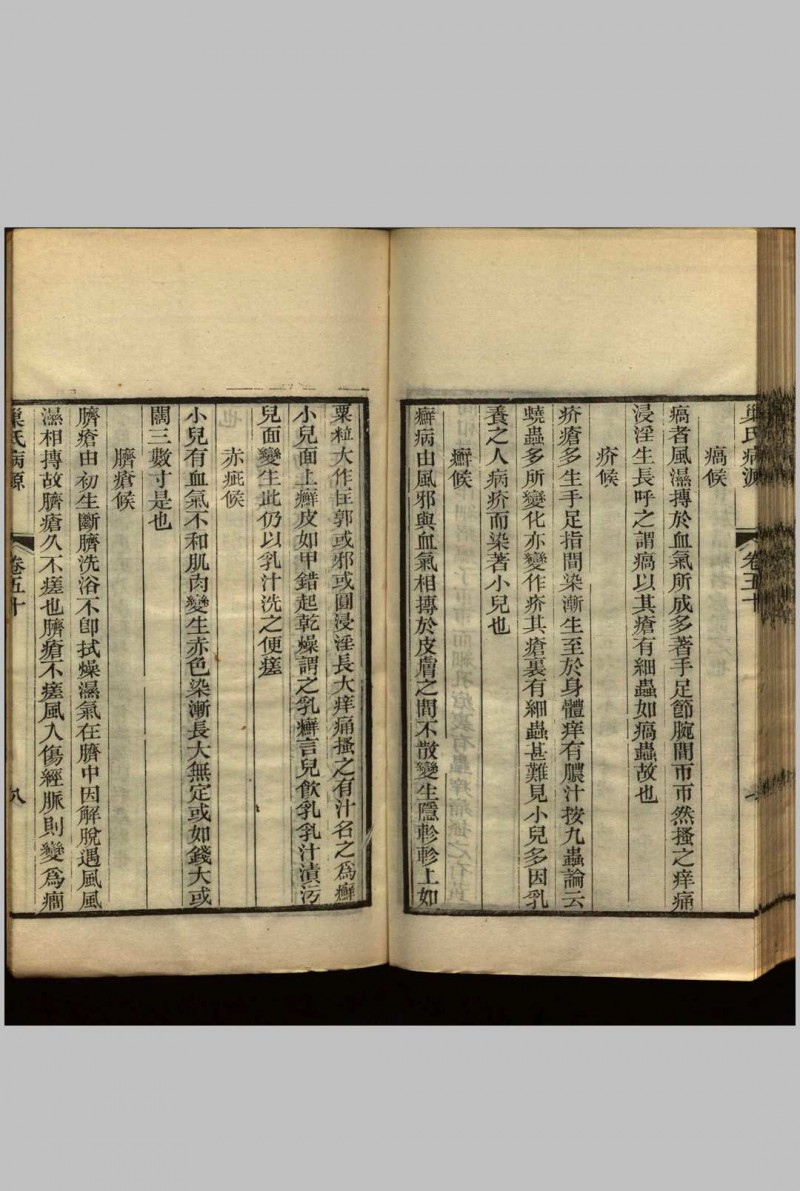 巢氏病源 卷五十
瘑候
瘑者風濕搏於血氣所成多著手足節腕間帀帀然搔之痒痛
浸淫生長呼之謂瘑以其瘡有細蟲如瘑蟲故也
疥候
疥瘡多生手足指間染漸生至於身體痒有膿汁按九蟲論云
蟯蟲多所變化亦變作疥其瘡裏有細蟲甚難見小兒多因乳
養之人病疥而染著小兒也
癬候
癬病由風邪與血氣相搏於皮膚之間不散變生隱軫軫上如
粟粒大作匡郭或邪或圓浸淫長大痒痛搔之有汁名之爲癬
小兒面上癬皮如甲錯起乾燥謂之乳癬言兒飲乳乳汁漬污
兒面變生此仍以乳汁洗之便瘥
赤疵候
小兒有血氣不和肌肉變生赤色染漸長大無定或如錢大或
闊三數寸是也
臍瘡候
臍瘡由初生斷臍洗浴不卽拭燥濕氣在臍中因解脫遇風風
濕相搏故臍瘡久不瘥也臍瘡不瘥風入傷經脈則變爲癇
巢氏病源 卷五十 八